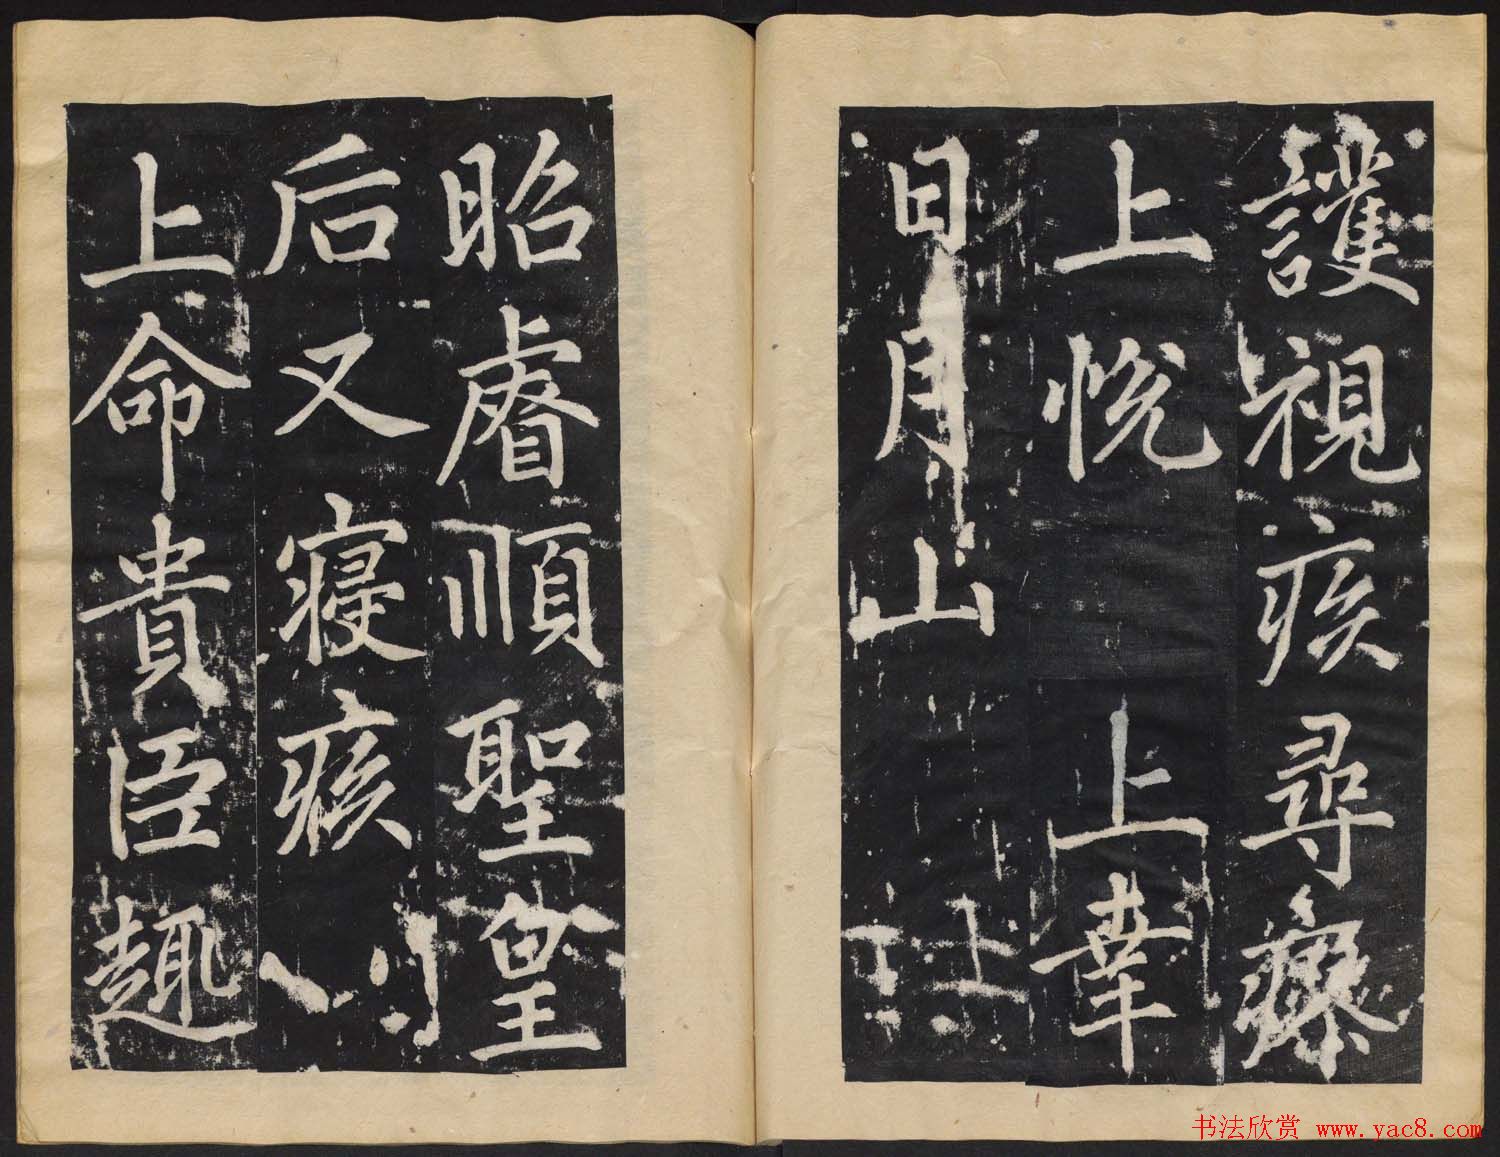 護視疾尋瘳
上悅上幸
日月山
昭睿順聖皇
后又寢疾
上命貴臣趣
书法欣赏 www.yac8.com